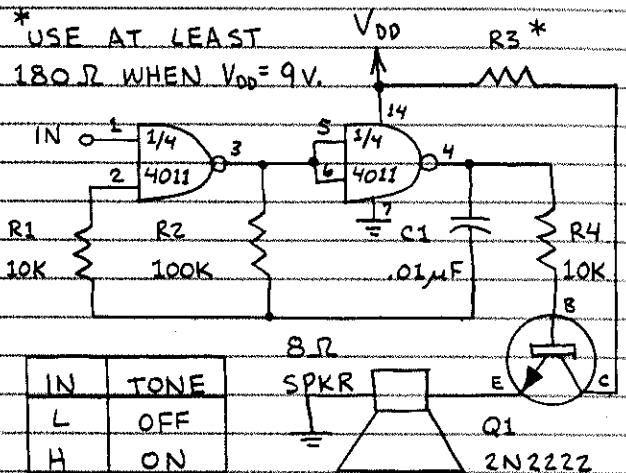 *USE AT LEAST
180Ω WHEN VDD = 9V.
VDD
R3 *
14
IN
1
2
1/4
4011
3
5
6
1/4
4011
4
7
R1
10K
R2
100K
C1
.01µF
R4
10K
B
E
C
Q1
2N2222
8Ω
SPKR
IN TONE
L OFF
H ON